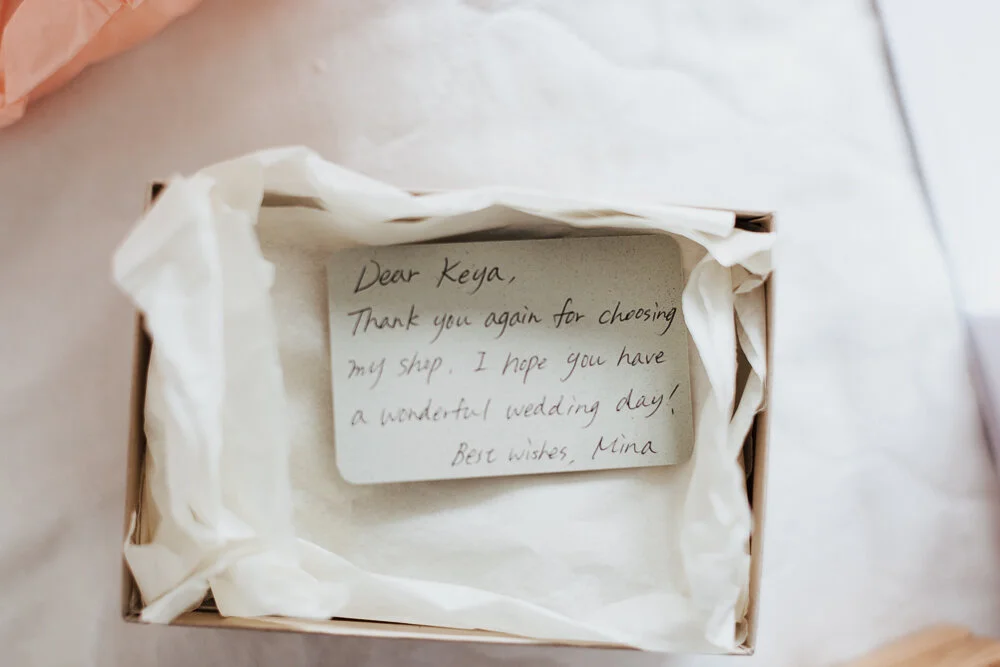 Dear Keya,
Thank you again for choosing
my shop. I hope you have
a wonderful wedding day!
Best wishes, Mina